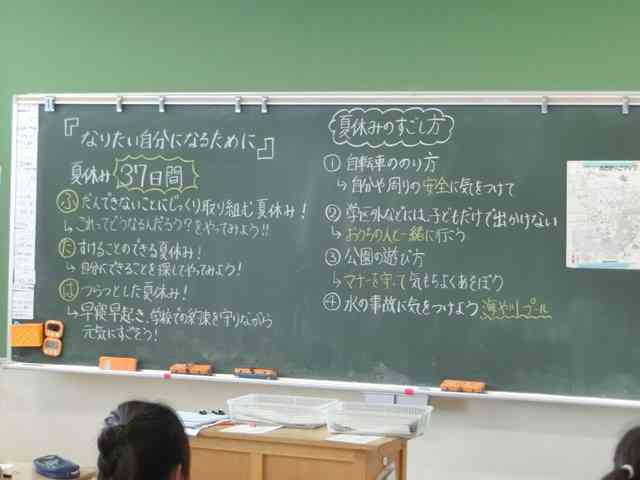 『なりたい自分になるために』
夏休み 37日間
ふだんできないことにじっくり取り組む夏休み!
↳これってどうなるんだろう?をやってみよう!!
たすけることのできる夏休み!
↳自分にできることを探してやってみよう!
はつらつとした夏休み!
↳早寝早起き、学校での約束を守りながら
元気にすごそう!
夏休みのすごし方
① 自転車ののり方
↳自分や周りの安全に気をつけて
② 学区外などには、子どもだけで出かけない
↳おうちの人と一緒に行こう
③ 公園の遊び方
↳マナーを守って気もちよくあそぼう
④ 水の事故に気をつけよう 海や川プール